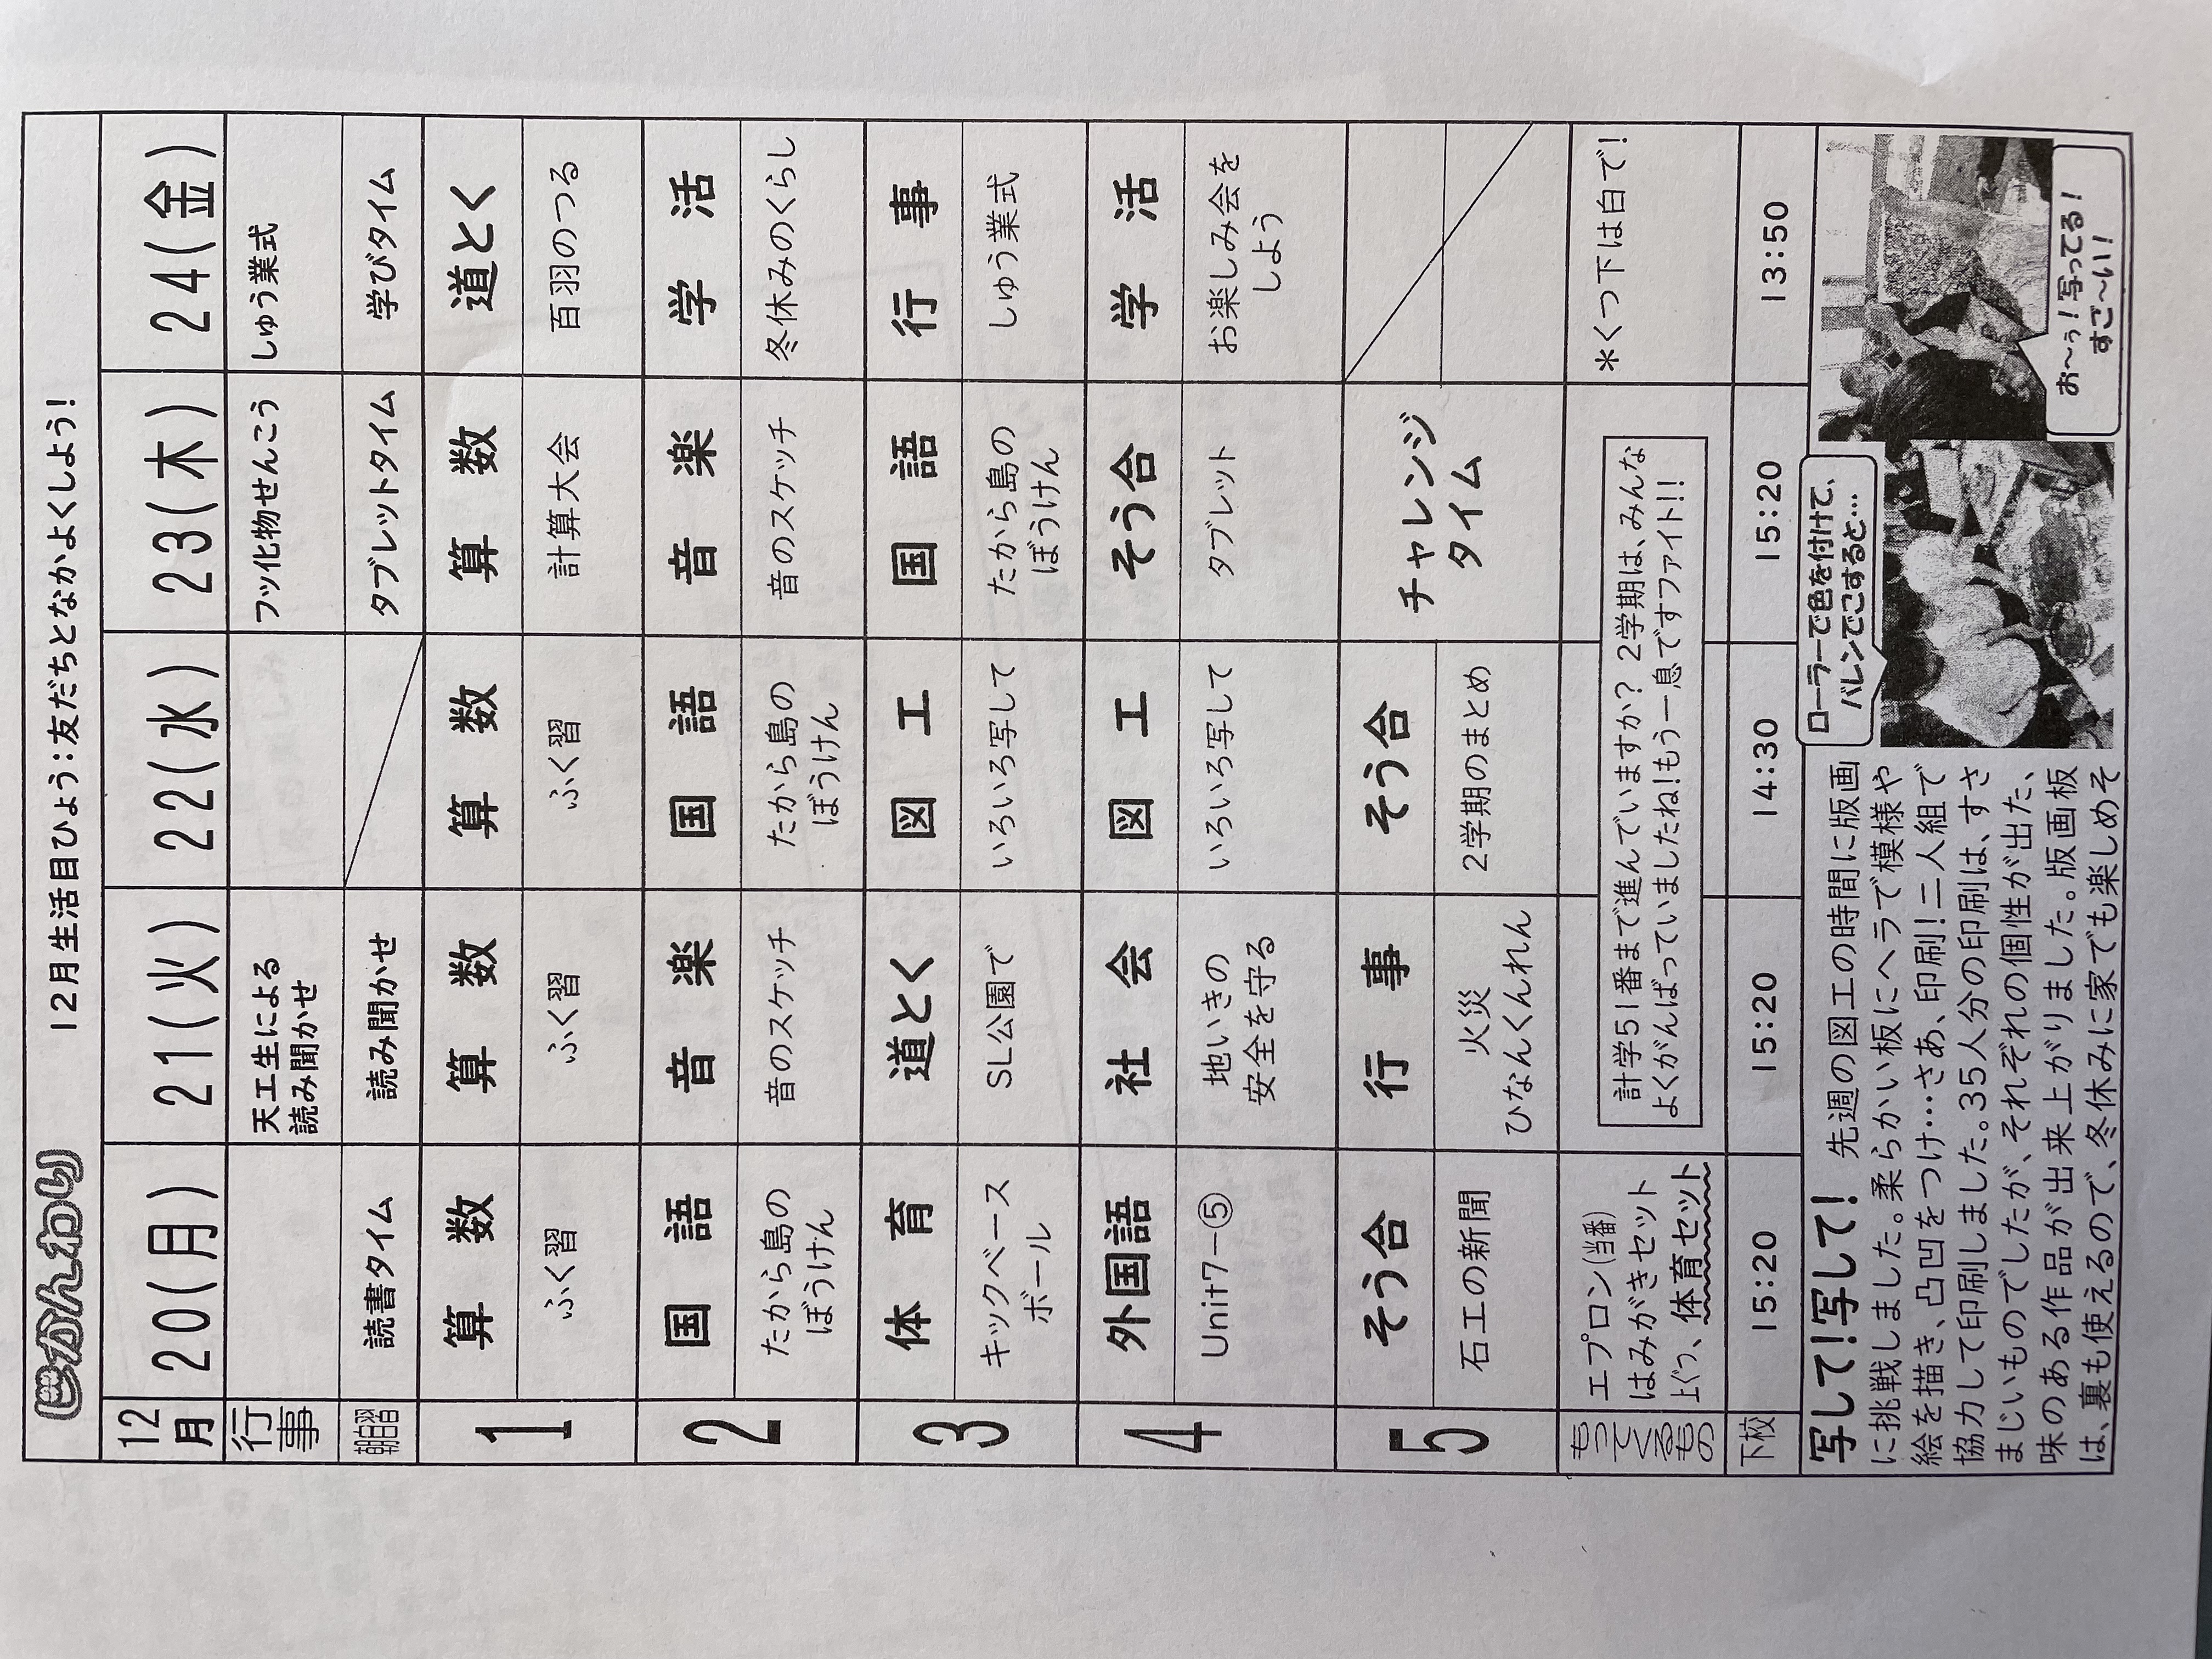 じかんわり 12月生活目ひょう：友だちとなかよくしよう！
12月 20(月) 21(火) 22(水) 23(木) 24(金)
行事
天工生による
読み聞かせ
フッ化物せんこう
しゅう業式
朝自習 読書タイム 読み聞かせ タブレットタイム 学びタイム
1 算数 算数 算数 算数 道とく
ふく習 ふく習 ふく習 計算大会 百羽のつる
2 国語 音楽 国語 音楽 学活
たから島の
ぼうけん
音のスケッチ
たから島の
ぼうけん
音のスケッチ
冬休みのくらし
3 体育 道とく 図工 国語 行事
キックベース
ボール
SL公園で
いろいろ写して
たから島の
ぼうけん
しゅう業式
4 外国語 社会 図工 そう合 学活
Unit7-⑤
地いきの
安全を守る
いろいろ写して
タブレット
お楽しみ会を
しよう
5 そう合 行事 そう合
チャレンジ
タイム
石工の新聞
火災
ひなんくんれん
2学期のまとめ
もってくるもの
エプロン(当番)
はみがきセット
上ぐつ、体育セット
計学51番まで進んでいますか？2学期は、みんな
よくがんばっていましたね！もう一息ですファイト!!
＊くつ下は白で！
下校 15:20 15:20 14:30 15:20 13:50
写して！写して！ 先週の図工の時間に版画
に挑戦しました。柔らかい板にヘラで模様や
絵を描き、凸凹をつけ…さあ、印刷！二人組で
協力して印刷しました。35人分の印刷は、すさ
まじいものでしたが、それぞれの個性が出た、
味のある作品が出来上がりました。版画板
は、裏も使えるので、冬休みに家でも楽しめそ
ローラーで色を付けて、
バレンでこすると…
お～ぅ！写ってる！
すご～い！